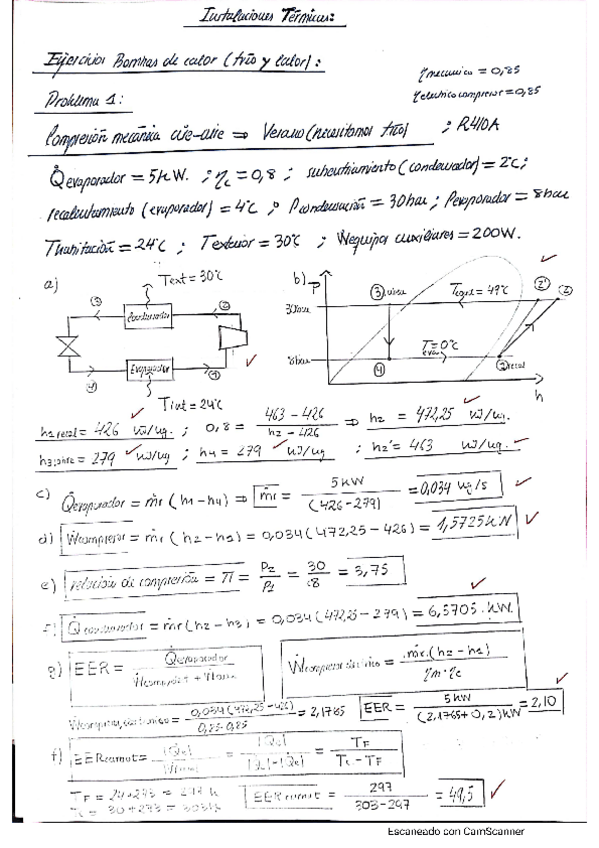 Instalaciones Térmicas:
Ejercicios Bombas de calor (frío y calor):
η mecanico = 0,85
η electrico compresor = 0,85
Problema 1:
Compresión mecánica aire-aire ⇒ Verano (necesitamos frío) ; R410A
Q̇evaporador = 5kW. ; ηc = 0,8 ; subenfriamiento (condensador) = 2℃;
recalentamiento (evaporador) = 4℃; Pcondensación = 30bar; Pevaporador = 8bar
Thabitación = 24℃ ; Texterior = 30℃ ; Wequipos auxiliares = 200W.
a)
Text = 30℃
Condensador
Evaporador
Tint = 24℃
b)
P
30bar
8bar
T = 49℃
T = 0℃
h
h1 recal = 426 kJ/kg. ; 0,8 = (463 - 426)/(h2 - 426) ⇒ h2 = 472,25 kJ/kg.
h3 = 279 kJ/kg. ; h4 = 279 kJ/kg ; h2' = 463 kJ/kg.
c) Q̇evaporador = ṁr (h1 - h4) ⇒ ṁr = 5kW/(426 - 279) = 0,034 kg/s
d) Ẇcompresor = ṁr (h2 - h1) = 0,034 (472,25 - 426) = 1,5725 kW
e) relación de compresión = π = P2/P1 = 30/8 = 3,75
f) Q̇condensador = ṁr (h2 - h3) = 0,034 (472,25 - 279) = 6,5705 kW.
g) EER = Q̇evaporador/(Ẇcomp,elect + Ẇaux)
Ẇcompresor eléctrico = ṁr. (h2 - h1)/(ηm · ηe)
Ẇcompresor,electronico = 0,034 (472,25 - 426)/(0,85 · 0,85) = 2,1765
EER = 5kW/((2,1765 + 0,2) kW) = 2,10
f) EERcarnot = |Q̇c|/|Ẇ| = TF/(Tc - TF)
TF = 24 + 273 = 297 K
Tc = 30 + 273 = 303 K
EERcarnot = 297/(303 - 297) = 49,5
Escaneado con CamScanner